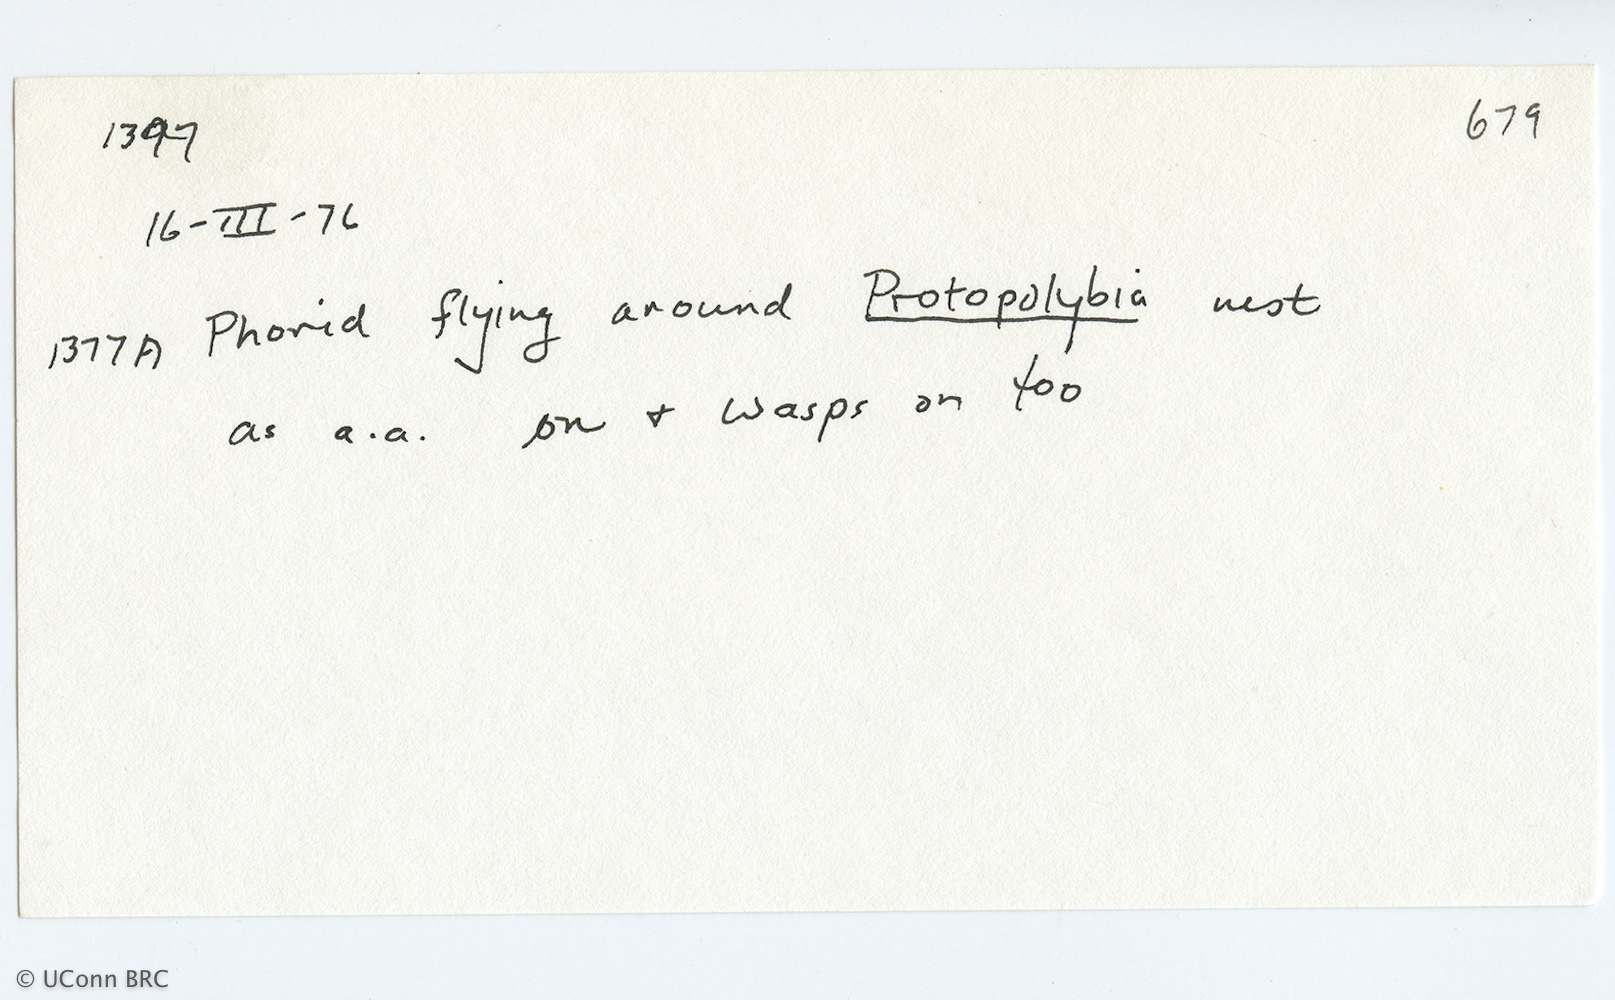 1397
679
16-III-76
1377A Phorid flying around Protopolybia nest
as a.a. on + wasps on too
© UConn BRC